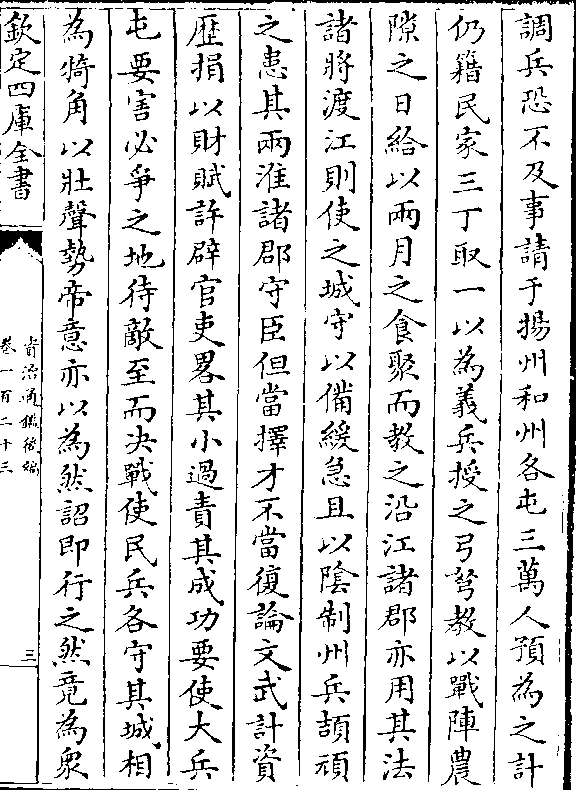 調兵恐不及事請于揚州和州各屯三萬人預為之計
仍籍民家三丁取一以為義兵授之弓弩教以戰陣農
隙之日給以兩月之食聚而教之沿江諸郡亦用其法
諸將渡江則使之城守以備緩急且以陰制州兵頡頏
之患其兩淮諸郡守臣但當擇才不當復論文武計資
歴捐以財賦許辟官吏畧其小過責其成功要使大兵
屯要害必爭之地待敵至而决戰使民兵各守其城相
為犄角以壯聲勢帝意亦以為然詔即行之然竟為衆
欽定四庫全書
資治通鑑後編
卷一百二十三
三